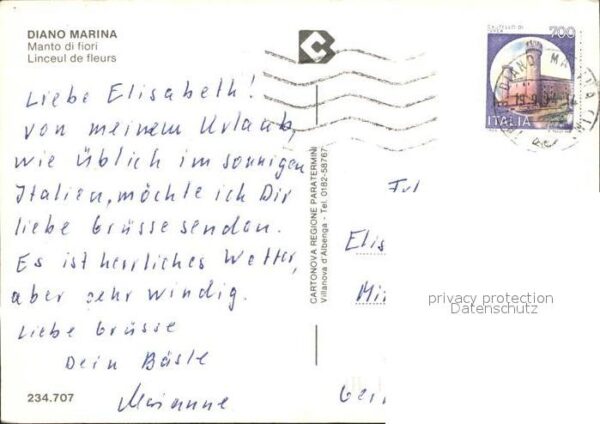 DIANO MARINA
Manto di fiori
Linceul de fleurs
Liebe Elisabeth!
von meinem Urlaub,
wie üblich im sonnigen
Italien, möchte ich Dir
liebe Grüsse senden.
Es ist herrliches Wetter,
aber sehr windig.
Liebe Grüsse
Dein Bäsle
Marianne
234.707
CARTONOVA REGIONE PARATERMINI
Villanova d'Albenga - Tel. 0182-58767
700
ITALIA
DIANO MA
Elis
privacy protection
Datenschutz